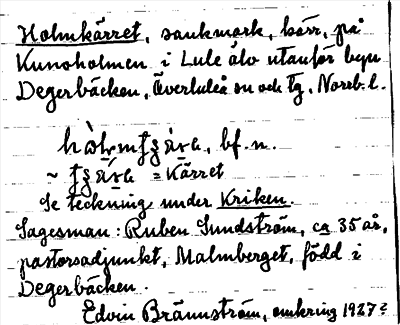 Holmkärret, sankmark, kärr, på
Kunoholmen i Lule älv utanför byn
Degerbäcken, Överluleå sn och tg, Norrb. l.
bf. n.
= Kärret
Se teckning under Kriken.
Sagesman: Ruben Sundström, ca 35 år,
pastorsadjunkt, Malmberget, född i
Degerbäcken.
Edvin Brännström, omkring 1927?